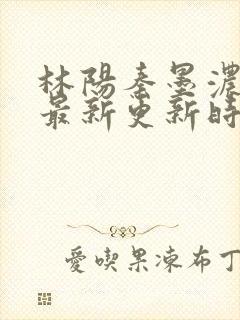 林陽秦墨濃
最新更新時
愛喫果凍布丁